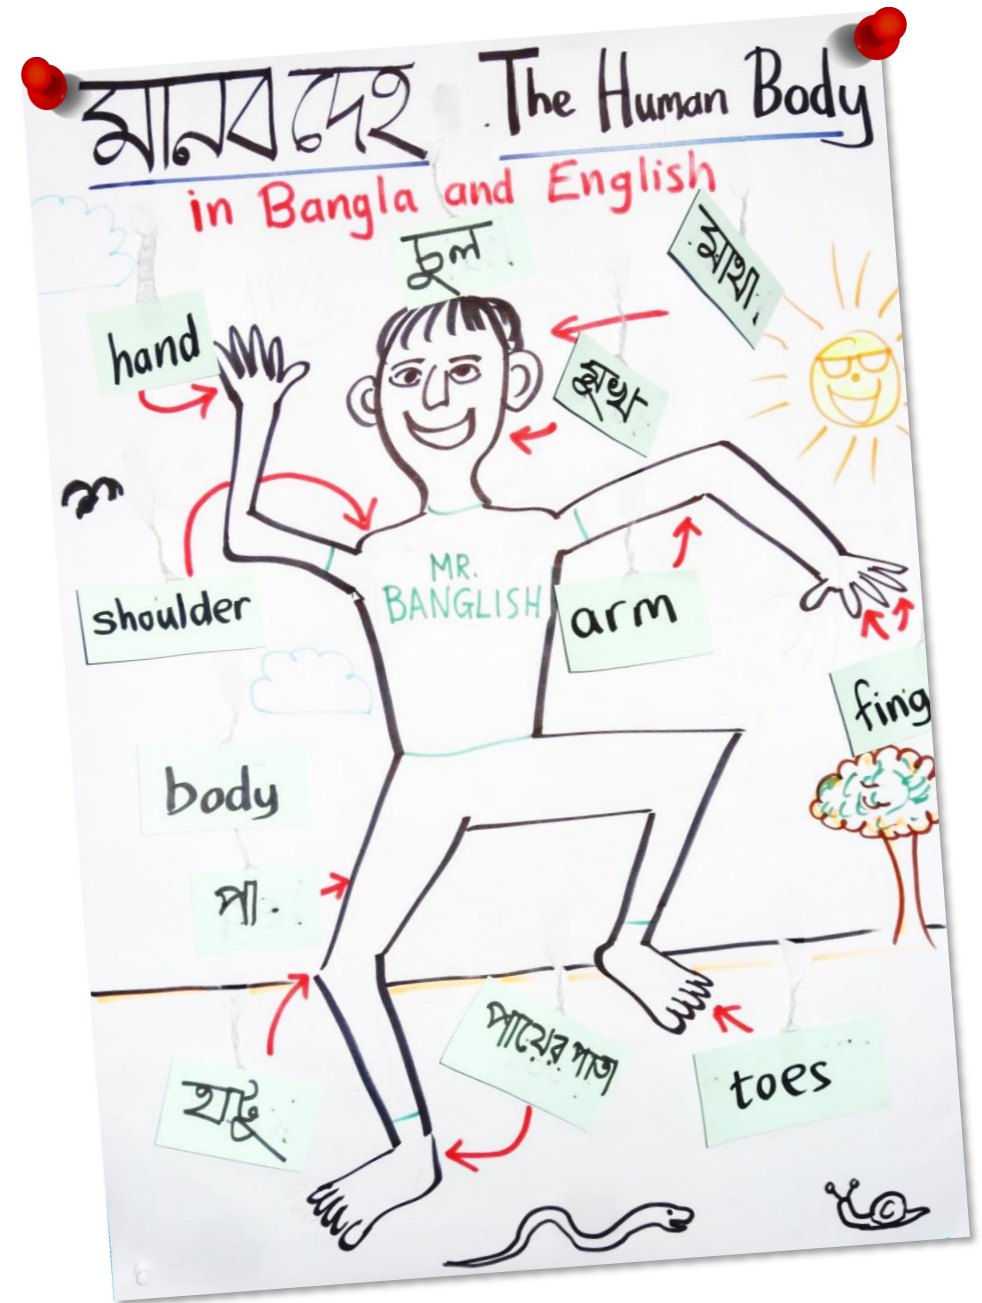 মানব দেহ The Human Body
in Bangla and English
চুল
মাথা
hand
মুখ
MR.
BANGLISH
shoulder
arm
fing
body
পা
পায়ের পাতা
হাটু
toes